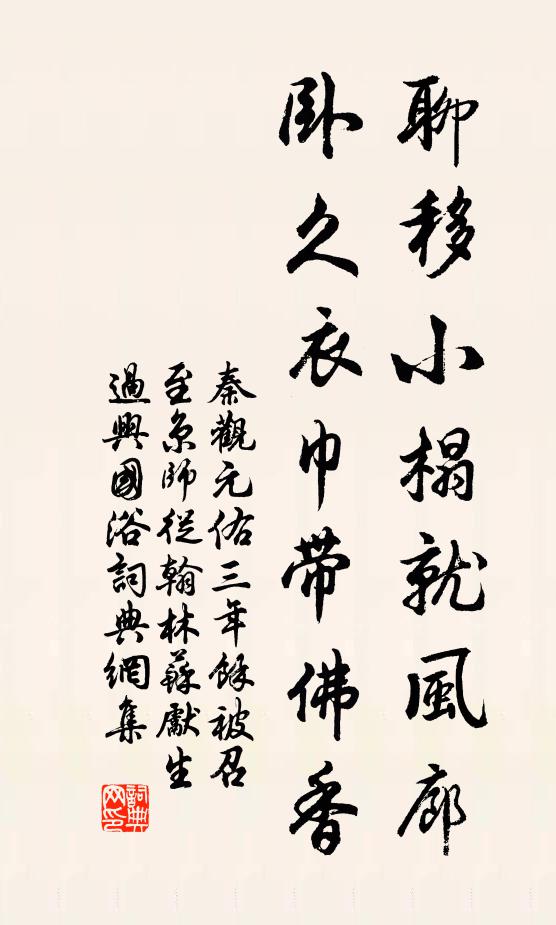 聊移小榻就風廊
臥久衣巾帶佛香
秦觀元佑三年餘被召
至京師從翰林蘇獻生
過興國浴詞典網集
詞典网印